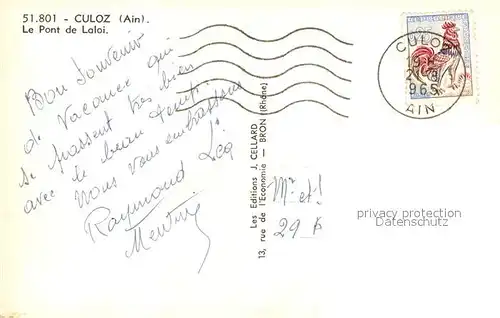 51.801 - CULOZ (Ain).
Le Pont de Loloi.
Bon Souvenir
de Vacance qui
se passent très bien
avec le beau temps.
Nous vous embrassons
Raymond Léa
Les Editions J. CELLARD
13, rue de l'Economie — BRON (Rhône)
CULOZ
AIN
Mr et
29
privacy protection
Datenschutz